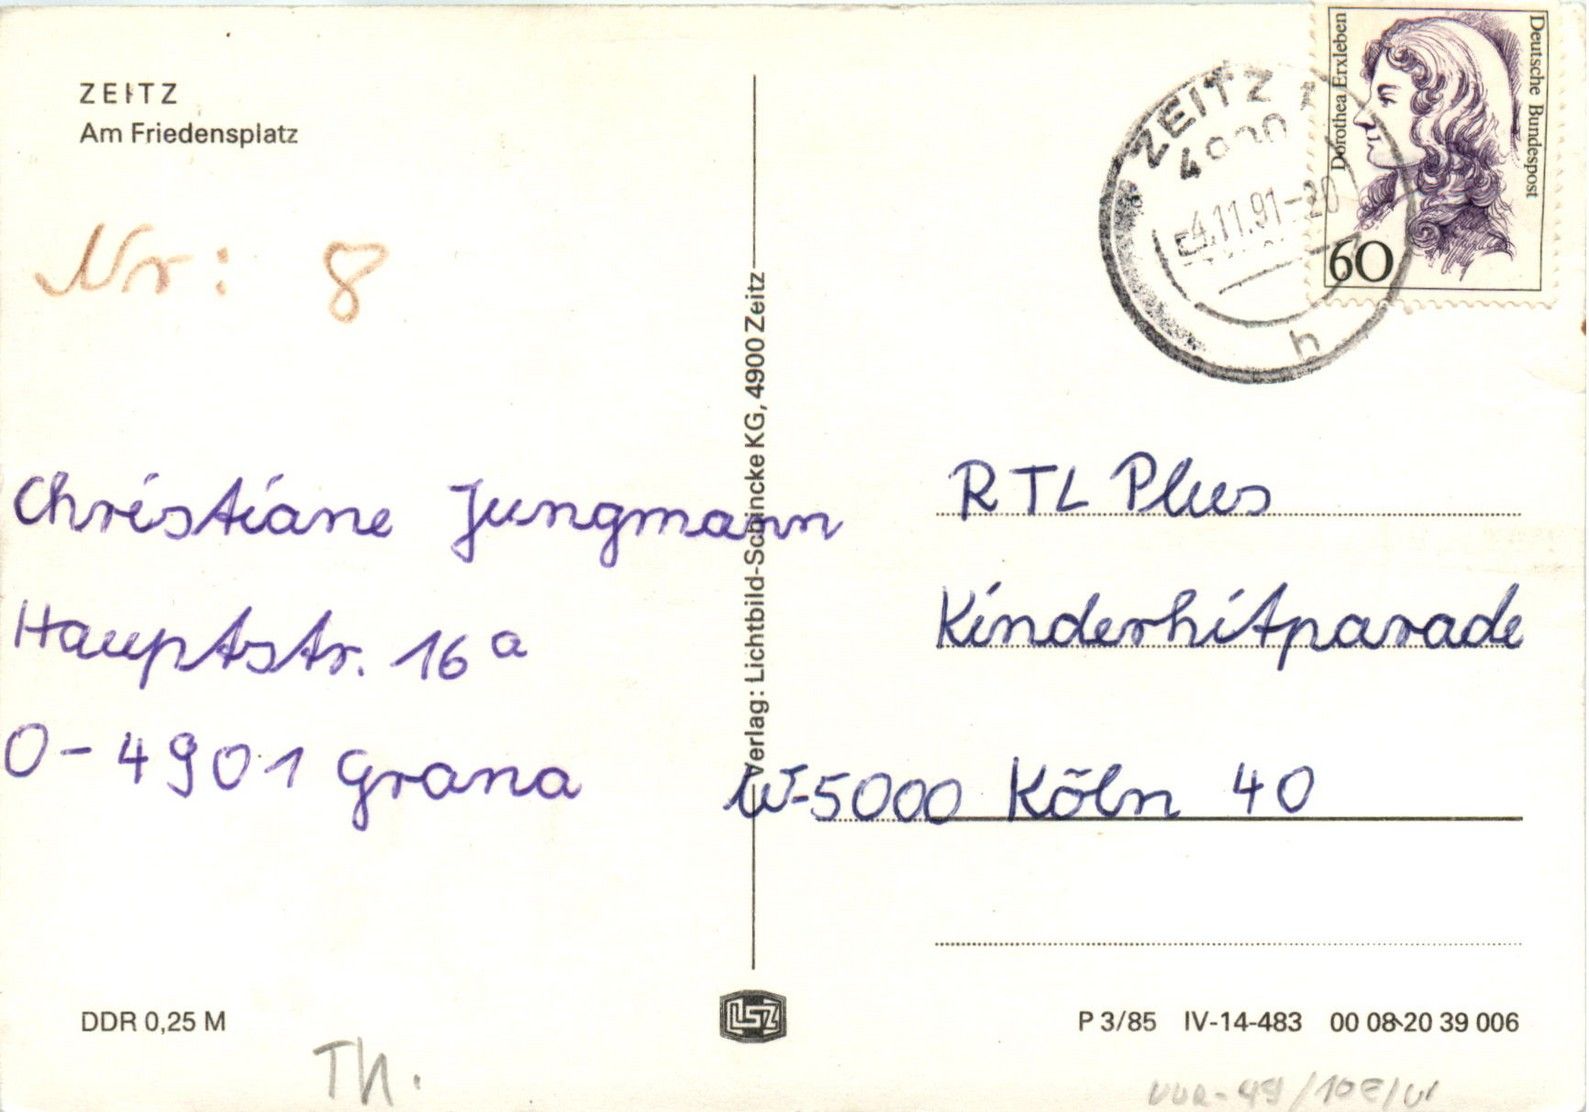 ZEITZ
Am Friedensplatz
Nr: 8
Christiane Jungmann
Hauptstr. 16a
O-4901 Grana
DDR 0,25 M
Th.
Verlag: Lichtbild-Schincke KG, 4900 Zeitz
LSZ
ZEITZ 1
4.11.91-20
h
Dorothea Erxleben
Deutsche Bundespost
60
RTL Plus
Kinderhitparade
W-5000 Köln 40
P 3/85 IV-14-483 00 08 20 39 006